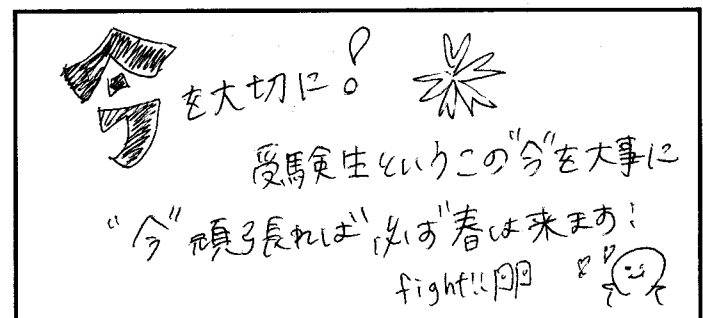 今を大切に!
受験生というこの"今"を大事に
"今"頑張れば"必ず"春は来ます!
fight!!